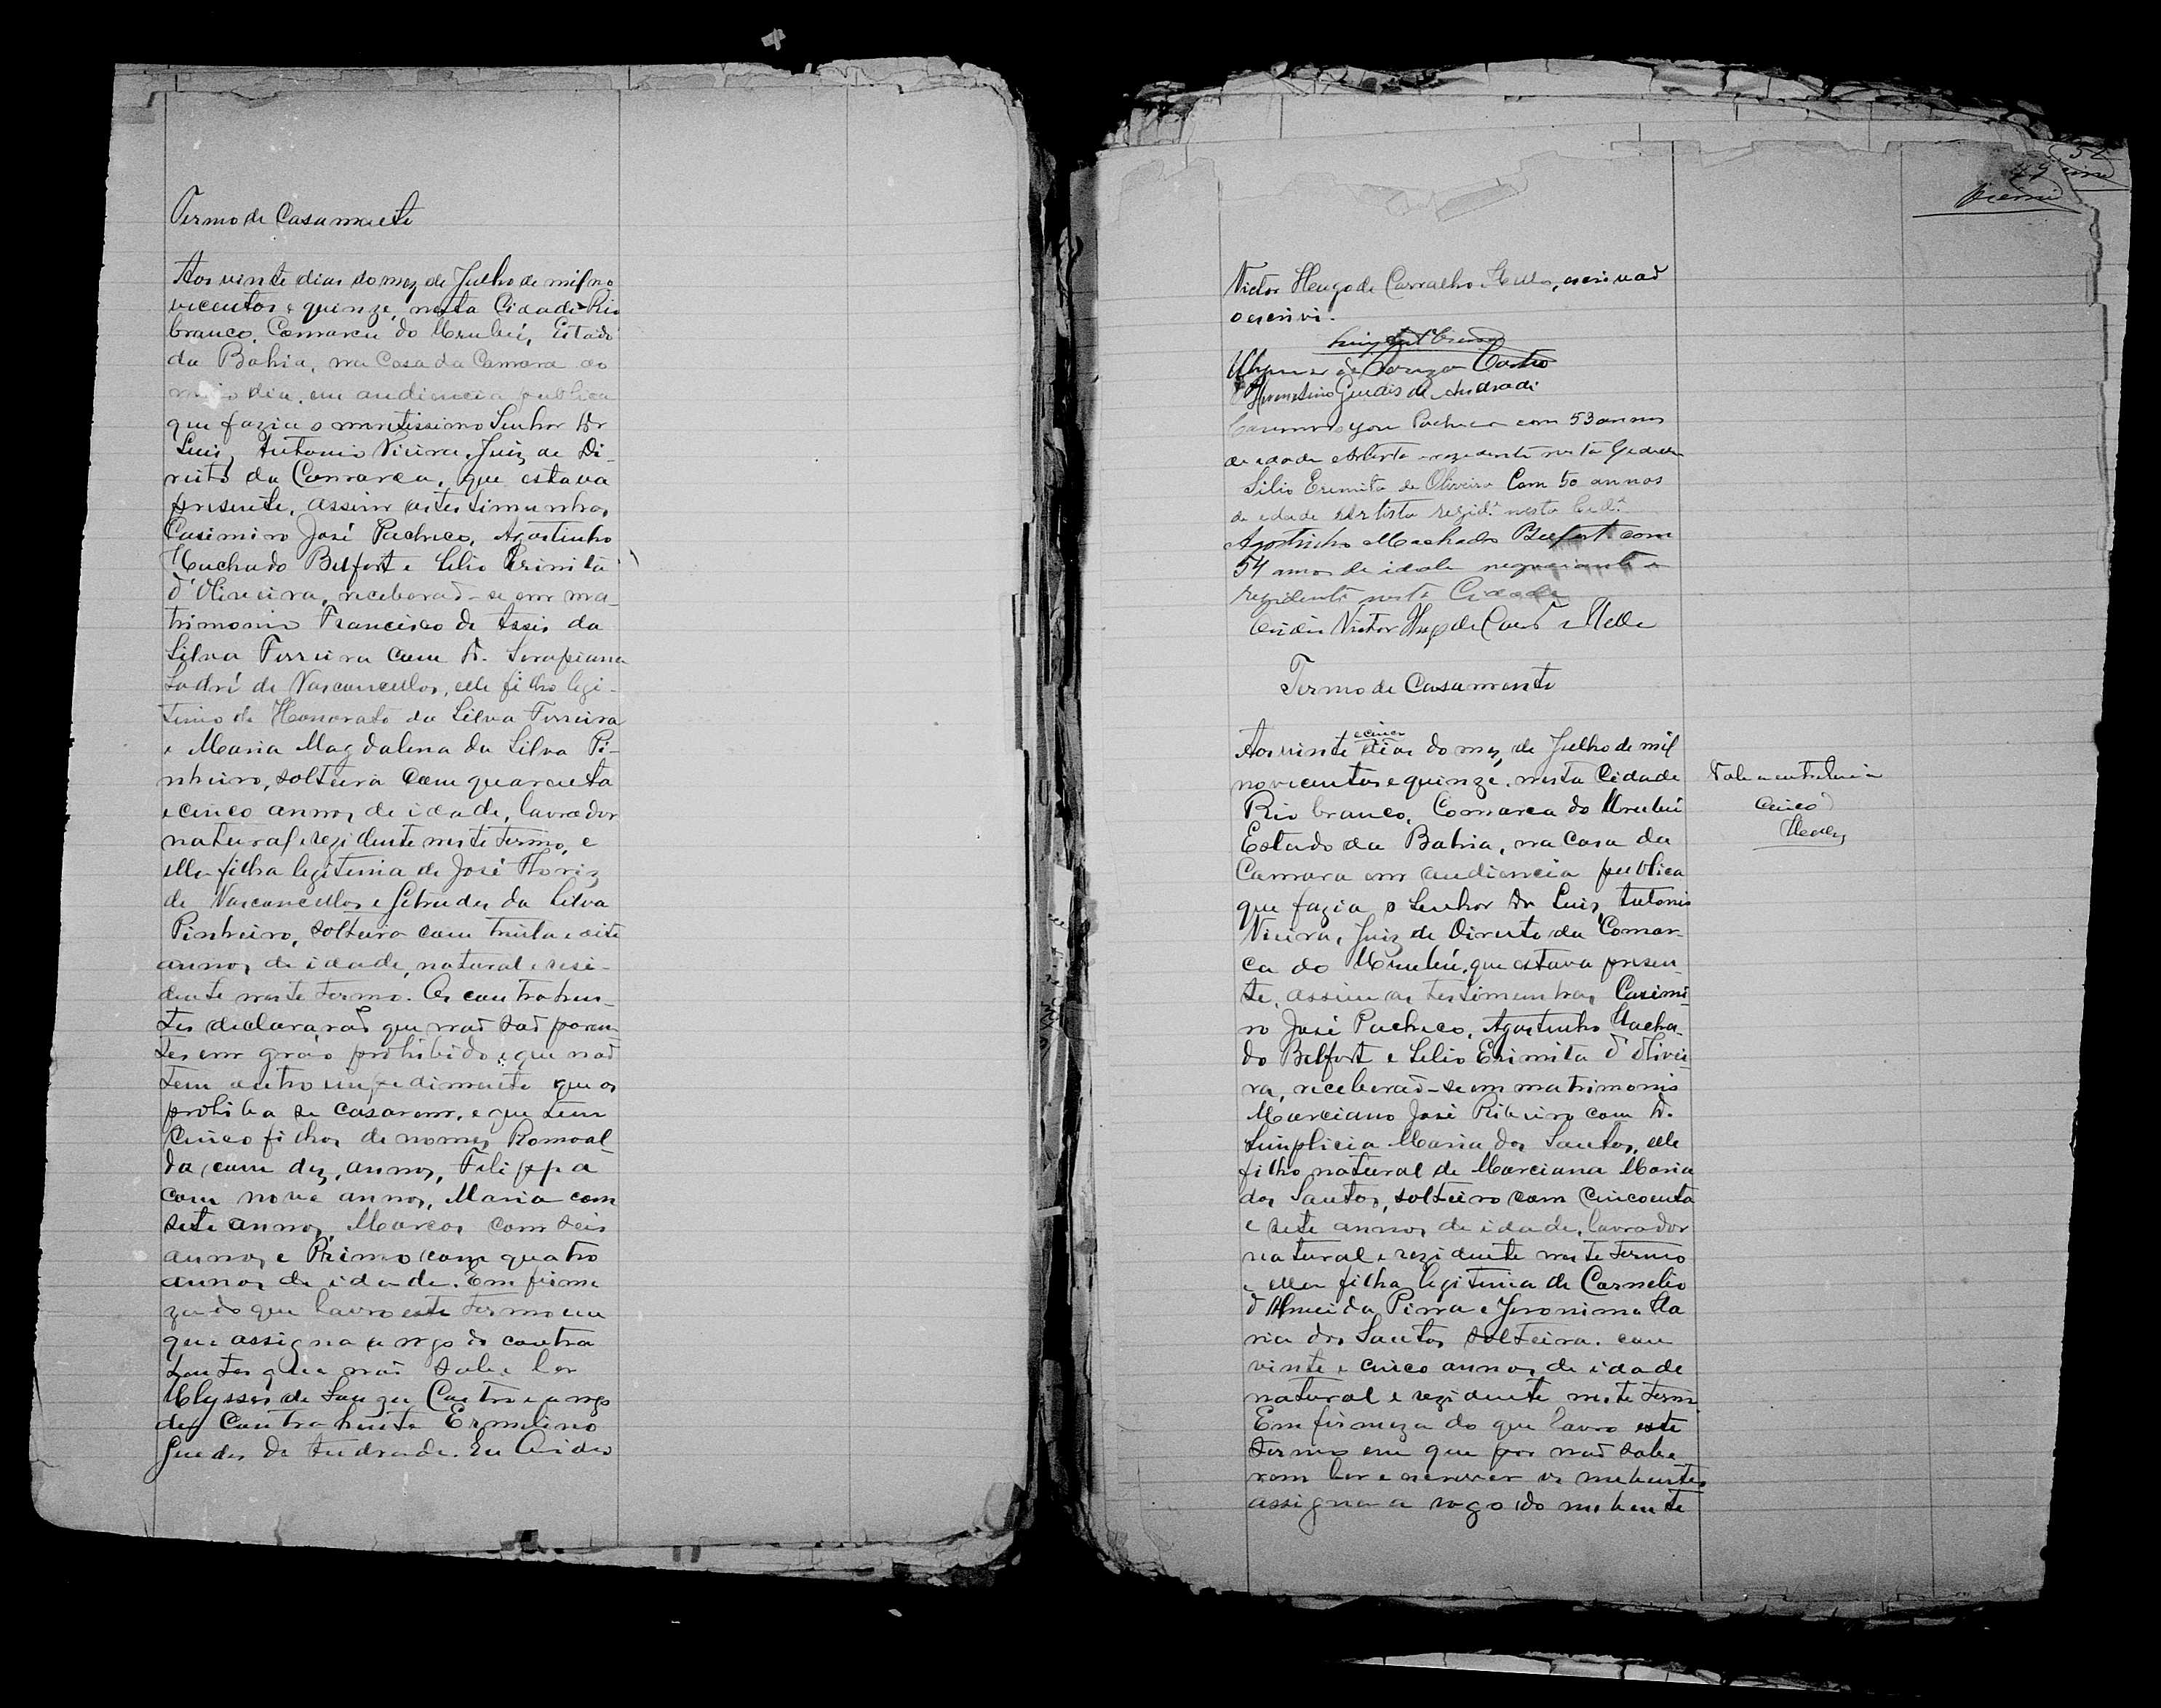 Termo de Casamento
Aos vinte dias do mez de Julho de mil no
vecentos e quinze, nesta Cidade Rio
branco, Comarca do Urubú, Estado
da Bahia, na Casa da Camara ao
meio dia, em audiencia publica
que fazia o meritissimo Senhor Dr
Luiz Antonio Vieira, Juiz de Di-
reito da Comarca, que estava
presente, assim as testimunhas
Casimiro José Pacheco, Agostinho
Machado Belfort e Lilio Erimita
d'Oliveira, receberaõ-se em ma-
trimonio Francisco de Assis da
Silva Ferreira com D. Serapiana
de Vasconcellos, elle filho legi-
timo de Honorato da Silva Ferreira
e Maria Magdalena da Silva Pi-
nheiro, solteiro com quarenta
e cinco annos de idade, lavrador
natural e rezidente neste termo, e
ella filha legitima de José
de Vasconcellos e Getrudes da Silva
Pinheiro, solteira com trinta e oito
annos de idade, natural e resi-
dente neste termo. Os contrahen-
tes declararaõ que naõ saõ paren-
tes em gráo prohibido e que naõ
tem outro impedimento que os
prohiba se casarem, e que tem
cinco filhos de nomes Romoal-
da com dez annos, Filippa
com nove annos, Maria com
sete annos, Marcos com seis
annos e Primo com quatro
annos de idade. Em firme
za do que lavro este termo em
que assigna a rogo do contra
hentes que naõ sabe ler
Ulysses de Souza Castro e a rogo
da Contrahente Ermelino
Guedes de Andrade. Eu Ovidio
Victor Hugo de Carvalho Mello, escrivaõ
o escrevi.
Ulysses de Souza Castro
Hermelino Guedes de Andrade
Casimiro José Pacheco com 53 annos
de edade Artista e rezidente nesta Cidade
Lilio Eremita de Oliveira Com 50 annos
de edade Artista rezid.e nesta Cid.e
Agostinho Machado Belfort com
54 annos de idade negociante e
rezidente nesta Cidade
Ovidio Victor Hugo de Carv.o e Mello
Termo de Casamento
Aos vinte e cinco dias do mez de Julho de mil
novecentos e quinze, nesta Cidade
Rio branco, Comarca do Urubú
Estado da Bahia, na Casa da
Camara em audiencia publica
que fazia o Senhor Dr Luiz Antonio
Vieira, Juiz de Direito da Comar-
ca do Urubú, que estava presen-
te, assim as testimunhas Casimi-
ro José Pacheco, Agostinho Macha-
do Belfort e Lilio Erimita d'Olivei-
ra, receberaõ-se em matrimonio
Marciano José Ribeiro com D.
Simplicia Maria dos Santos, elle
filho natural de Marciana Maria
dos Santos, solteiro com cincoenta
e sete annos de idade, lavrador
natural e rezidente neste termo
e ella filha legitima de Cornelio
d'Almeida Pinna e Jeronima Ma
ria dos Santos solteira, com
vinte e cinco annos de idade
natural e rezidente neste termo
Em firmeza do que lavro este
termo em que por naõ sabe
rem ler e escrever os nubentes
assigna a rogo do nubente
Vale a entrelinha
cinco